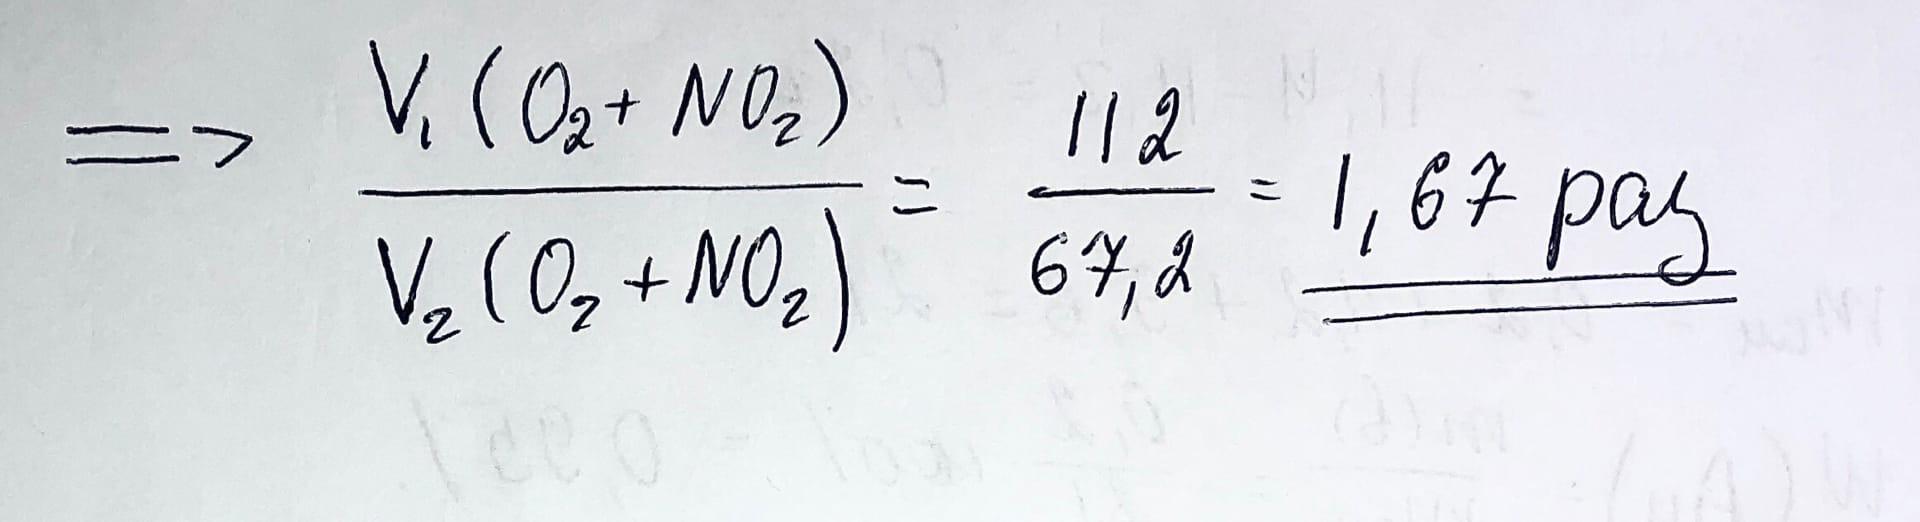 => V₁(O₂ + NO₂) / V₂(O₂ + NO₂) = 112 / 67,2 = 1,67 раз